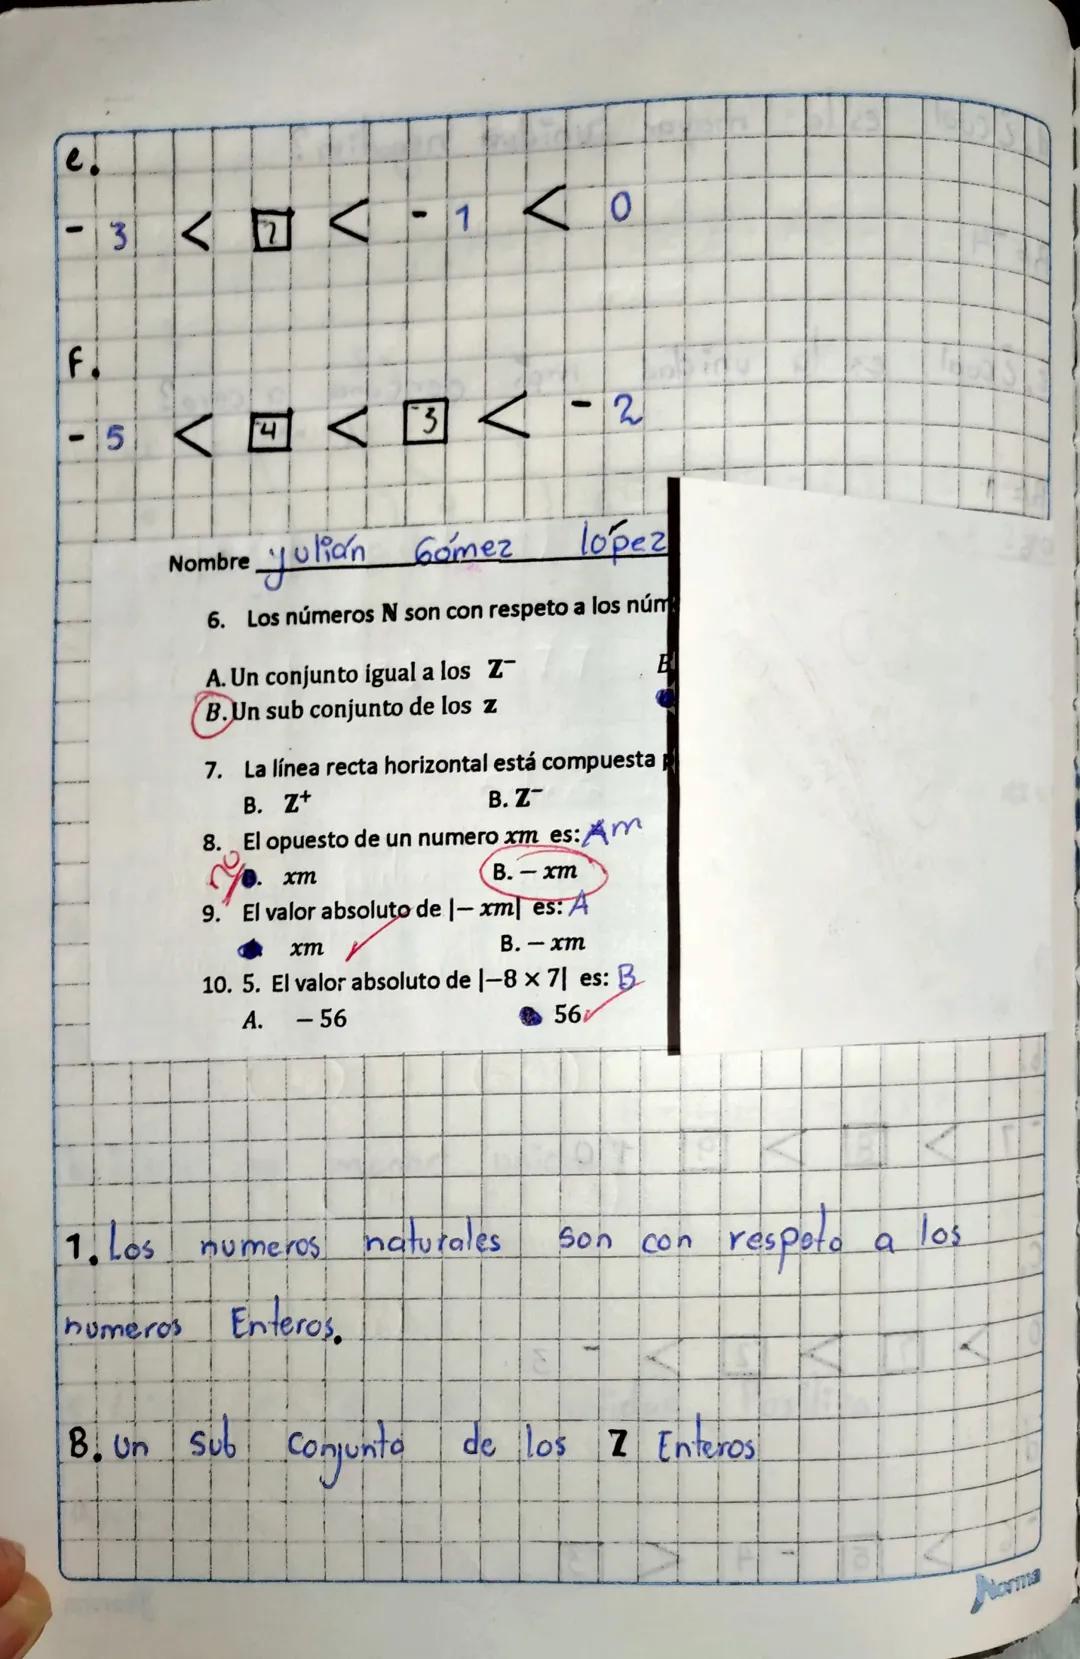 e.
- 3 < 2 < - 1 < 0
f.
- 5 < -4 < -3 < - 2
Nombre yulian Gómez lópez
6. Los números N son con respeto a los núm
A. Un conjunto igual a los Z⁻ B
B. Un sub conjunto de los Z
7. La línea recta horizontal está compuesta p
B. Z⁺ B. Z⁻
8. El opuesto de un numero xm es: Am
xm B. – xm
9. El valor absoluto de |– xm| es: A
xm B. – xm
10. 5. El valor absoluto de |–8 × 7| es: B
A. – 56 56
1. Los numeros naturales son con respeto a los
numeros Enteros.
B. Un sub Conjunto de los Z Enteros
Norma